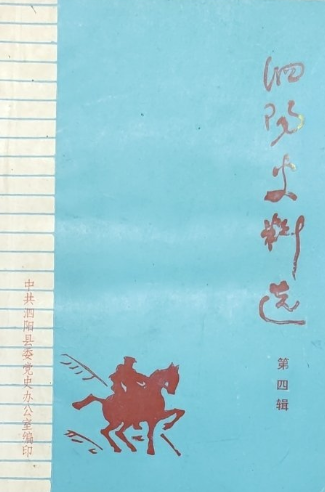 泗阳史料选
第四辑
中共泗阳县委党史办公室编印